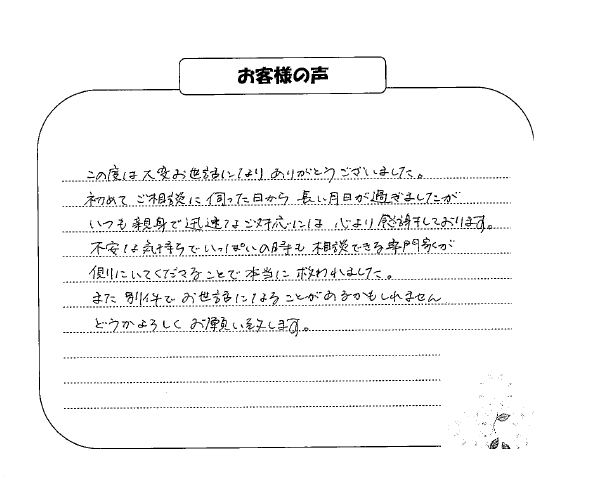 お客様の声
この度は大変お世話になり ありがとうございました。
初めて ご相談に 伺った日から 長い月日が過ぎましたが
いつも親身で迅速なご対応には 心より感謝しております。
不安な気持ちでいっぱいの時も 相談できる専門家が
側にいてくださることで本当に 救われました。
また 別件で お世話になることがあるかもしれません
どうかよろしく お願い致します。